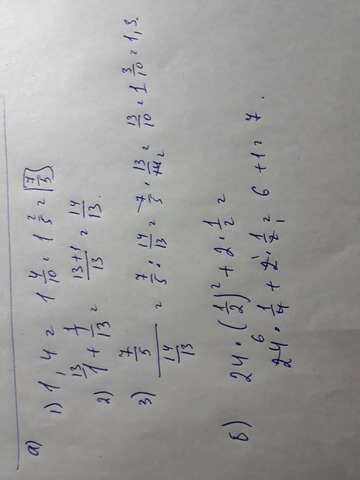 а)
1) 1,4 = 1 4/10 = 1 2/5 = 7/5
2) 1 + 1/13 = (13+1)/13 = 14/13.
3) (7/5)/(14/13) = 7/5 : 14/13 = 7/5 · 13/14 = 13/10 = 1 3/10 = 1,3.
б) 24 · (1/2)² + 2 · 1/2 =
24 · 1/4 + 2 · 1/2 = 6 + 1 = 7.